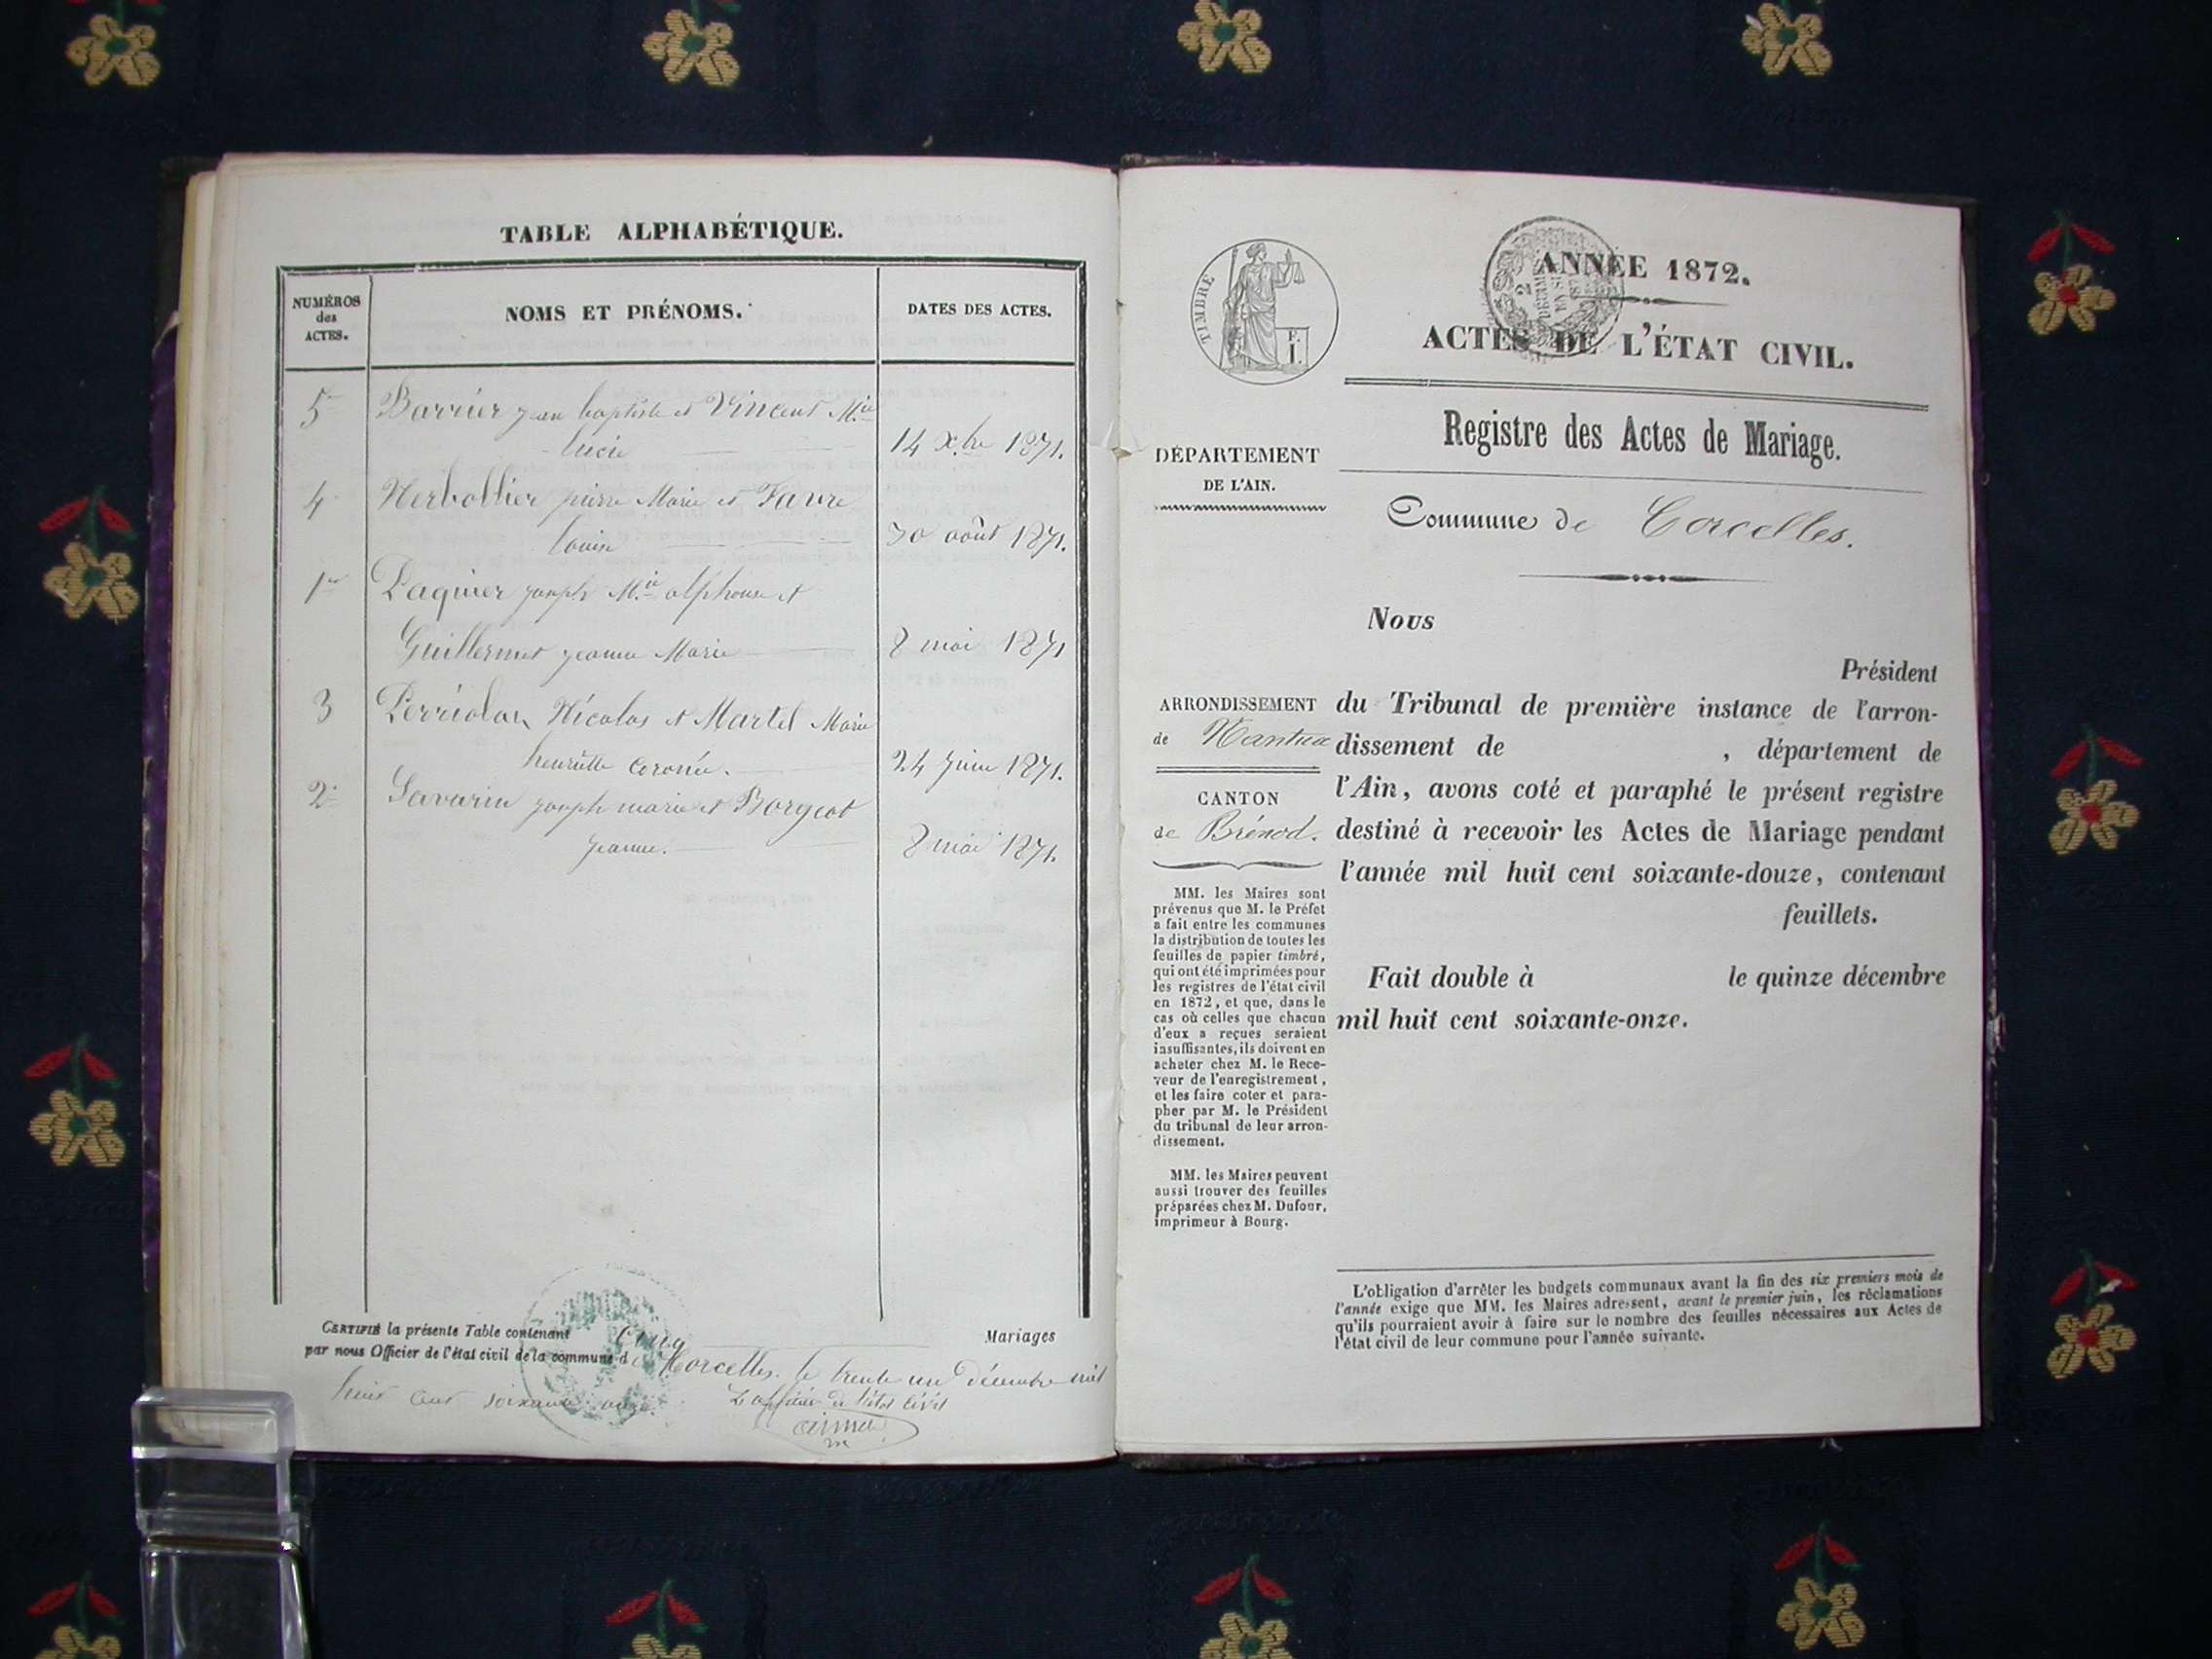 TABLE ALPHABÉTIQUE.
NUMÉROS
des
ACTES.
NOMS ET PRÉNOMS.
DATES DES ACTES.
5 Barrier jean baptiste et Vincent M.ie
lucie 14 Xbre 1871.
4 Herbollier pierre Marie et Favre
louise 30 août 1871.
1er Paquier joseph M.ie alphonse et
Guillermet jeanne Marie 8 mai 1871
3 Perriolan Nicolas et Martel Marie
henriette 24 juin 1871.
2 Savarin joseph marie et Borgeot
jeanne. 8 mai 1871.
CERTIFIÉ la présente Table contenant Cinq Mariages
par nous Officier de l'état civil de la commune de Corcelles. le trente un décembre mil
huit cent soixante onze. L'officier de l'état civil
TIMBRE
ANNÉE 1872.
ACTES DE L'ÉTAT CIVIL.
Registre des Actes de Mariage.
DÉPARTEMENT
DE L'AIN.
Commune de Corcelles.
Nous
Président
du Tribunal de première instance de l'arron-
dissement de , département de
l'Ain, avons coté et paraphé le présent registre
destiné à recevoir les Actes de Mariage pendant
l'année mil huit cent soixante-douze, contenant
feuillets.
Fait double à le quinze décembre
mil huit cent soixante-onze.
ARRONDISSEMENT
de Nantua
CANTON
de Brénod.
MM. les Maires sont
prévenus que M. le Préfet
a fait entre les communes
la distribution de toutes les
feuilles de papier timbré,
qui ont été imprimées pour
les registres de l'état civil
en 1872, et que, dans le
cas où celles que chacun
d'eux a reçues seraient
insuffisantes, ils doivent en
acheter chez M. le Rece-
veur de l'enregistrement,
et les faire coter et para-
pher par M. le Président
du tribunal de leur arron-
dissement.
MM. les Maires peuvent
aussi trouver des feuilles
préparées chez M. Dufour,
imprimeur à Bourg.
L'obligation d'arrêter les budgets communaux avant la fin des six premiers mois de
l'année exige que MM. les Maires adressent, avant le premier juin, les réclamations
qu'ils pourraient avoir à faire sur le nombre des feuilles nécessaires aux Actes de
l'état civil de leur commune pour l'année suivante.